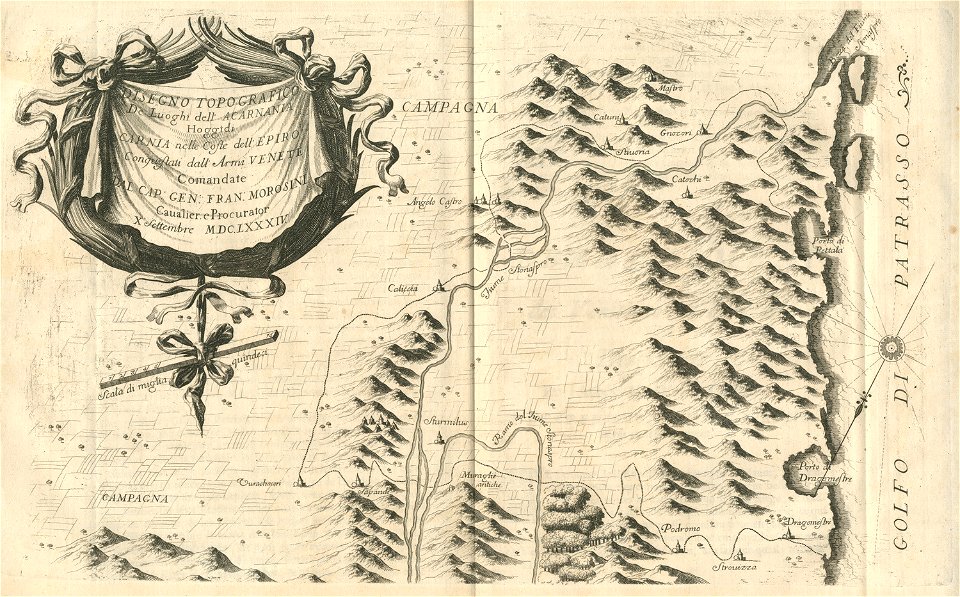 DISEGNO TOPOGRAFICO
De Luoghi dell' ACARNANIA
Hoggidi
CARNIA nelle Coste dell' EPIRO
Conquistati dall' Armi VENETE
Comandate
DAL CAP. GEN. FRAN. MOROSINI
Caualier, e Procurator
X Settembre MDCLXXXIV
Scala di miglia quindeci
CAMPAGNA
Mastro
Catuna
Gnocori
Stiuoria
Catochi
Angelo Castro
Porto di
Pettala
Fiume Stonaspro
Calicota
GOLFO DI PATRASSO
Sturnilus
Ramo del fiume Stonaspro
Vurachiori
Muraglie
antiche
Porto di
Dragomestre
CAMPAGNA
Podromo
Dragomestre
Strouizza